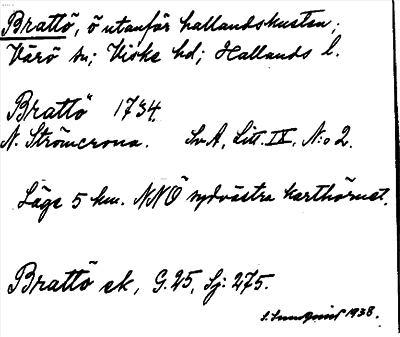 Brattö, ö utanför hallandskusten;
Värö sn; Viske hd; Hallands l.
Brattö 1734
N. Strömcrona. SvA, Litt. IX, N:o 2.
Läge 5 km. NNÖ sydvästra karthörnet.
Brattö ek, G. 25, Sj: 275.
S. Sundqvist 1938.